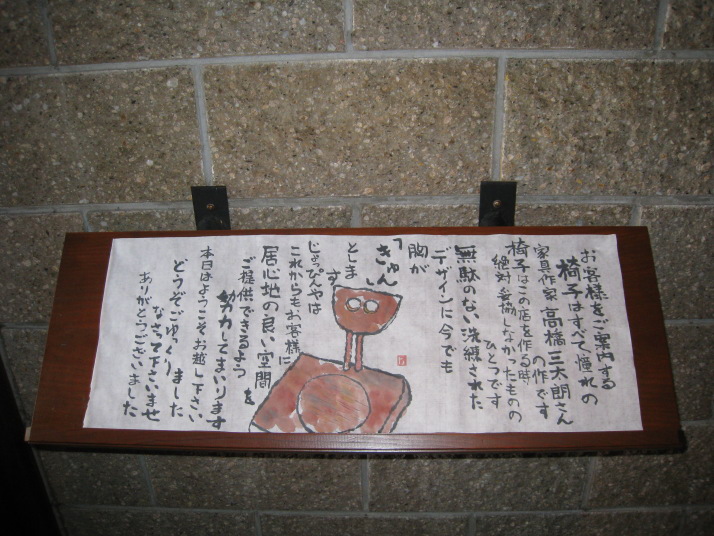 お客様をご案内する
椅子はすべて憧れの
家具作家 高橋三太朗さん
の作です
椅子はこの店を作る時
絶対妥協しなかったものの
ひとつです
無駄のない洗練された
デザインに今でも
胸が
「きゅん」
とします
じゃっぴんやは
これからもお客様に
居心地の良い空間を
ご提供できるよう
努力してまいります
本日はようこそお越し下さい
ました
どうぞごゆっくり
なさって下さいませ
ありがとうございました